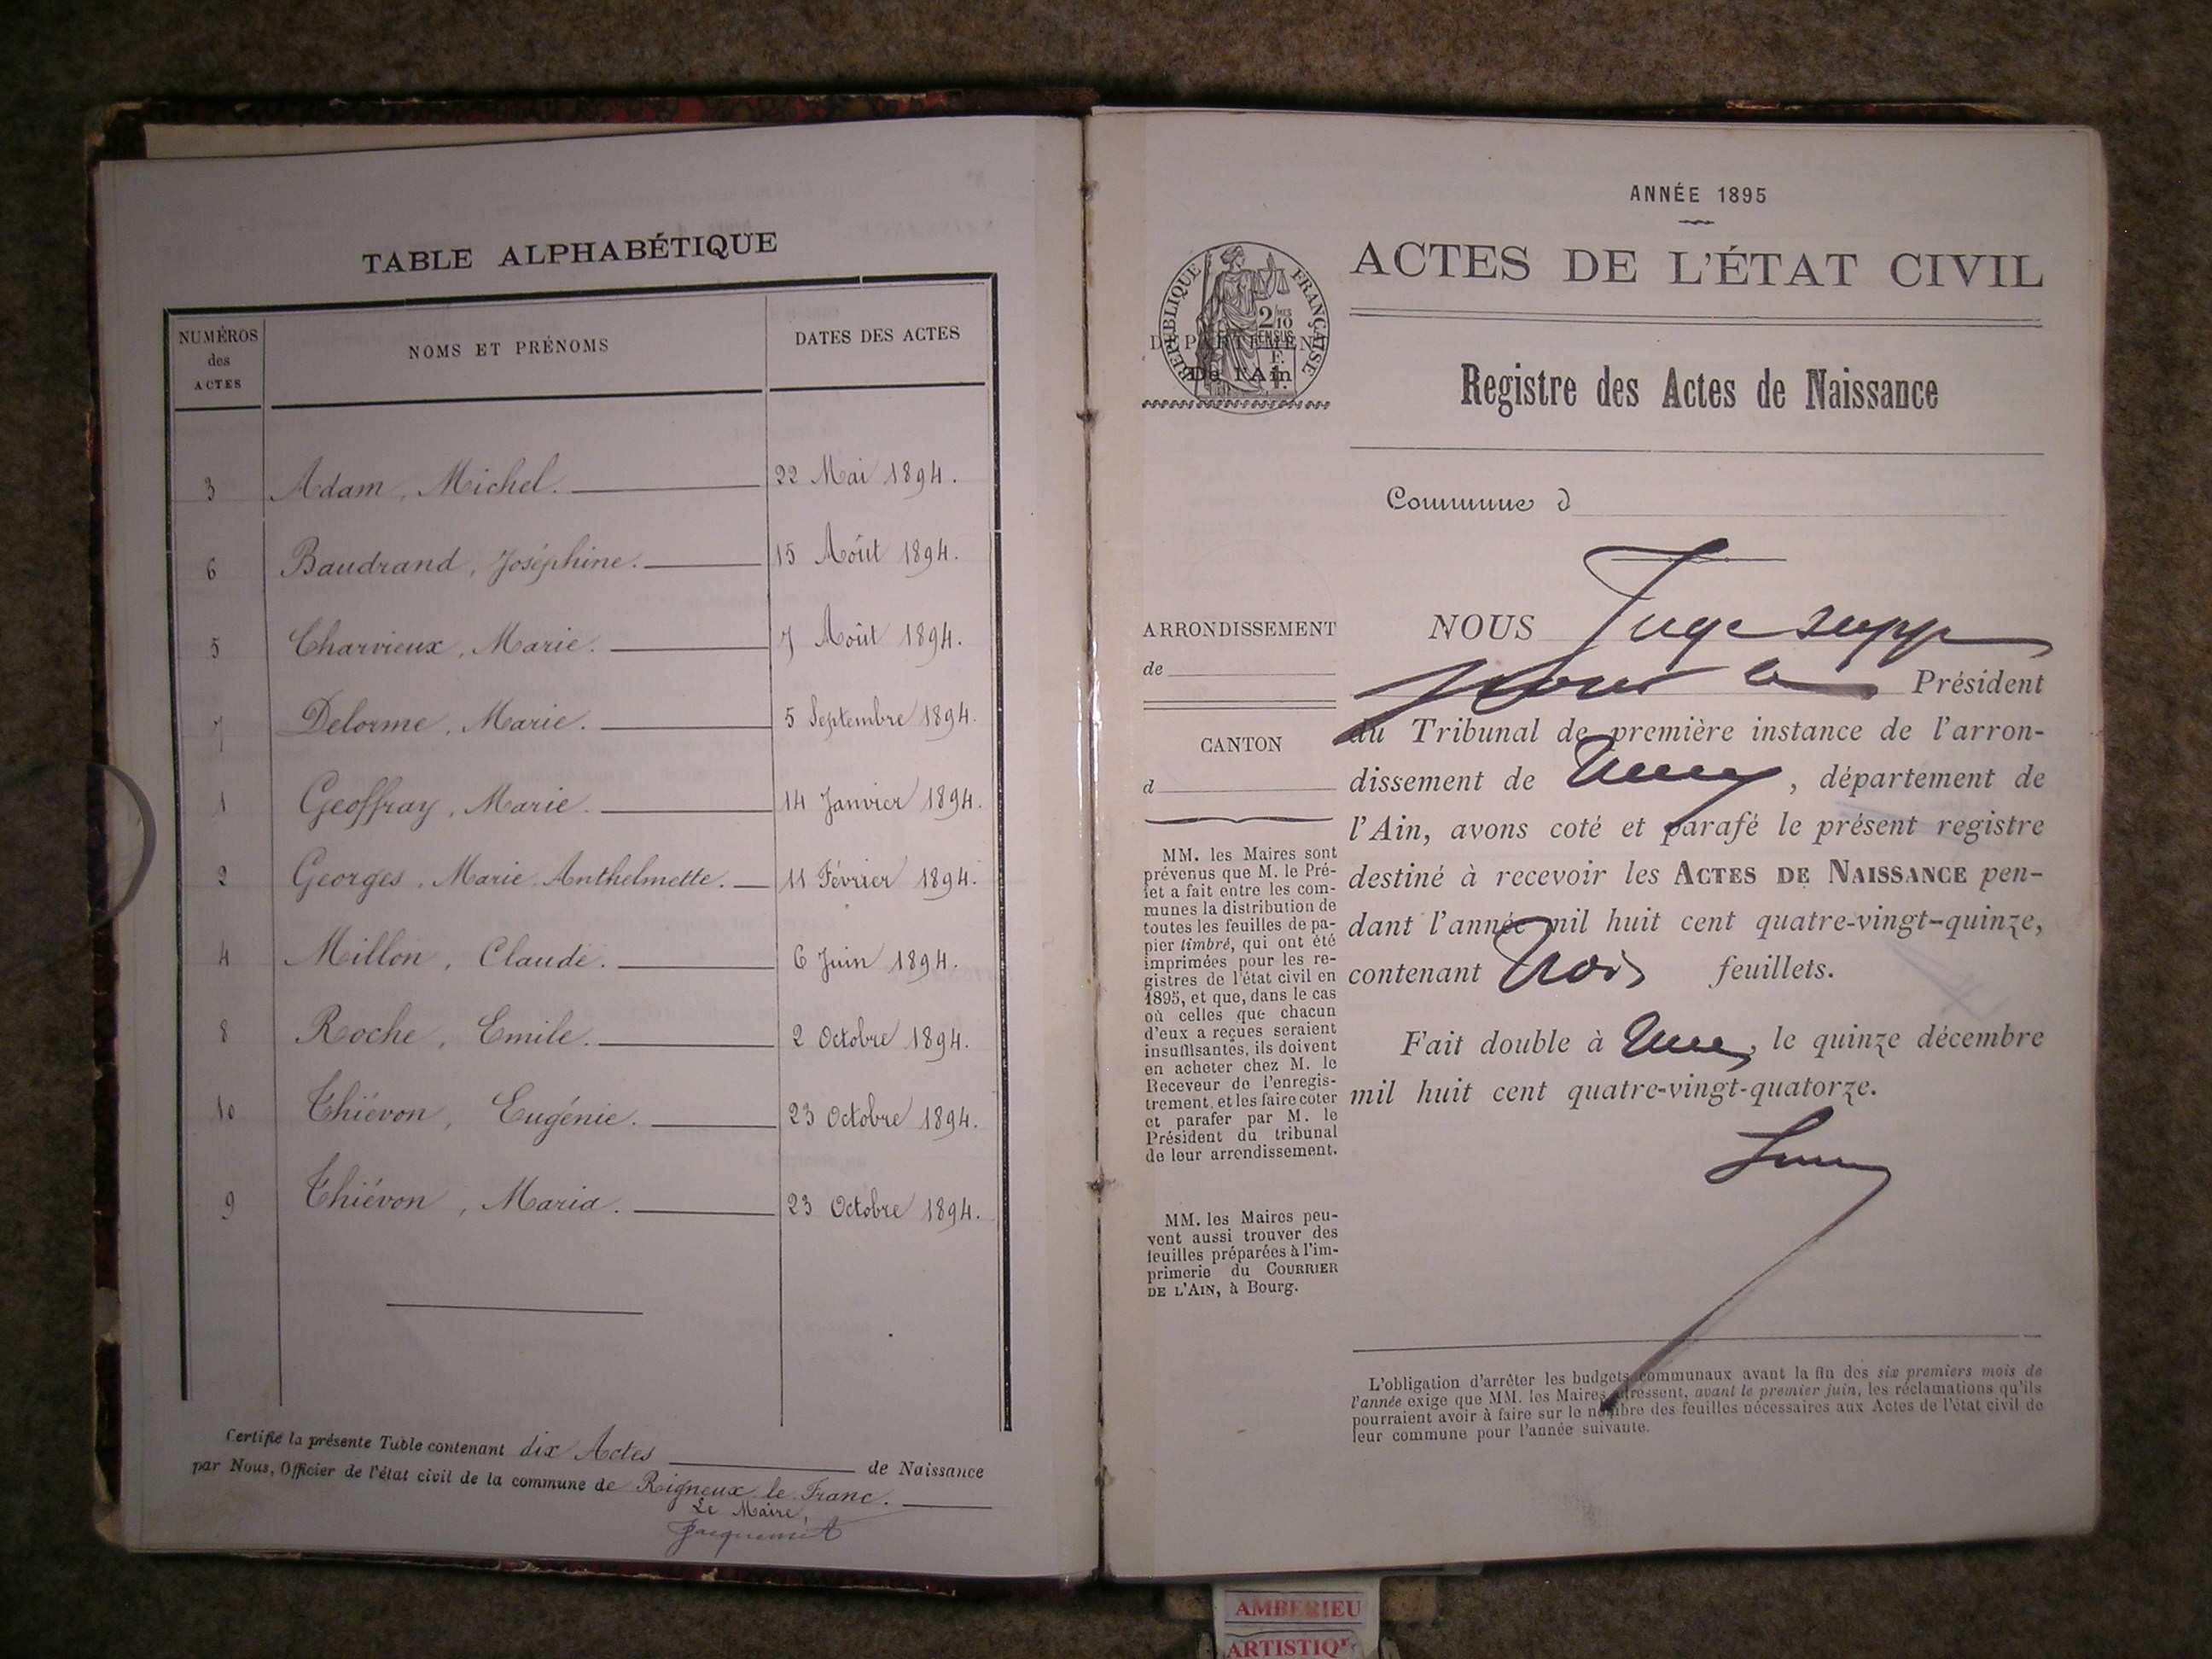 TABLE ALPHABÉTIQUE
NUMÉROS des ACTES NOMS ET PRÉNOMS DATES DES ACTES
3 Adam, Michel. 22 Mai 1894.
6 Baudrand, Joséphine. 15 Août 1894.
5 Charvieux, Marie. 7 Août 1894.
7 Delorme, Marie. 5 Septembre 1894.
1 Geoffray, Marie. 14 Janvier 1894.
2 Georges, Marie Anthelmette. 11 Février 1894.
4 Millon, Claude. 6 Juin 1894.
8 Roche, Emile. 2 Octobre 1894.
10 Thiévon, Eugénie. 23 Octobre 1894.
9 Thiévon, Maria. 23 Octobre 1894.
Certifié la présente Table contenant dix Actes de Naissance
par Nous, Officier de l'état civil de la commune de Rigneux le Franc.
Le Maire,
Jacquemet
ANNÉE 1895
ACTES DE L'ÉTAT CIVIL
RÉPUBLIQUE FRANÇAISE
2/10
DÉPARTEMENT
De l'Ain
Registre des Actes de Naissance
Commune d
ARRONDISSEMENT
de
CANTON
d
MM. les Maires sont
prévenus que M. le Pré-
fet a fait entre les com-
munes la distribution de
toutes les feuilles de pa-
pier timbré, qui ont été
imprimées pour les re-
gistres de l'état civil en
1895, et que, dans le cas
où celles que chacun
d'eux a reçues seraient
insuffisantes, ils doivent
en acheter chez M. le
Receveur de l'enregis-
trement, et les faire coter
et parafer par M. le
Président du tribunal
de leur arrondissement.
MM. les Maires peu-
vent aussi trouver des
feuilles préparées à l'im-
primerie du COURRIER
DE L'AIN, à Bourg.
NOUS Juge supp
pour le Président
du Tribunal de première instance de l'arron-
dissement de , département de
l'Ain, avons coté et parafé le présent registre
destiné à recevoir les ACTES DE NAISSANCE pen-
dant l'année mil huit cent quatre-vingt-quinze,
contenant trois feuillets.
Fait double à , le quinze décembre
mil huit cent quatre-vingt-quatorze.
L'obligation d'arrêter les budgets communaux avant la fin des six premiers mois de
l'année exige que MM. les Maires adressent, avant le premier juin, les réclamations qu'ils
pourraient avoir à faire sur le nombre des feuilles nécessaires aux Actes de l'état civil de
leur commune pour l'année suivante.
AMBERIEU
ARTISTIQ